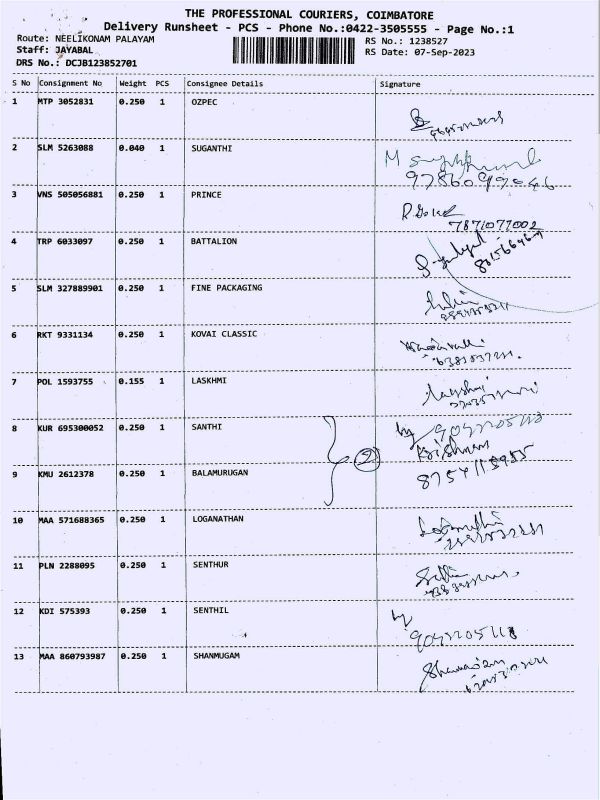 THE PROFESSIONAL COURIERS, COIMBATORE
Delivery Runsheet - PCS - Phone No.:0422-3505555 - Page No.:1
Route: NEELIKONAM PALAYAM
RS No.: 1238527
Staff: JAYABAL
RS Date: 07-Sep-2023
DRS No.: DCJB123852701
S No Consignment No Weight PCS Consignee Details Signature
1 MTP 3052831 0.250 1 OZPEC
2 SLM 5263088 0.040 1 SUGANTHI
3 VNS 505056881 0.250 1 PRINCE
7871077002
4 TRP 6033097 0.250 1 BATTALION
5 SLM 327889901 0.250 1 FINE PACKAGING
6 RKT 9331134 0.250 1 KOVAI CLASSIC
7 POL 1593755 0.155 1 LASKHMI
8 KUR 695300052 0.250 1 SANTHI
by
Krishnan
2
9 KMU 2612378 0.250 1 BALAMURUGAN
10 MAA 571688365 0.250 1 LOGANATHAN
11 PLN 2288095 0.250 1 SENTHUR
12 KDI 575393 0.250 1 SENTHIL
by
13 MAA 860793987 0.250 1 SHANMUGAM